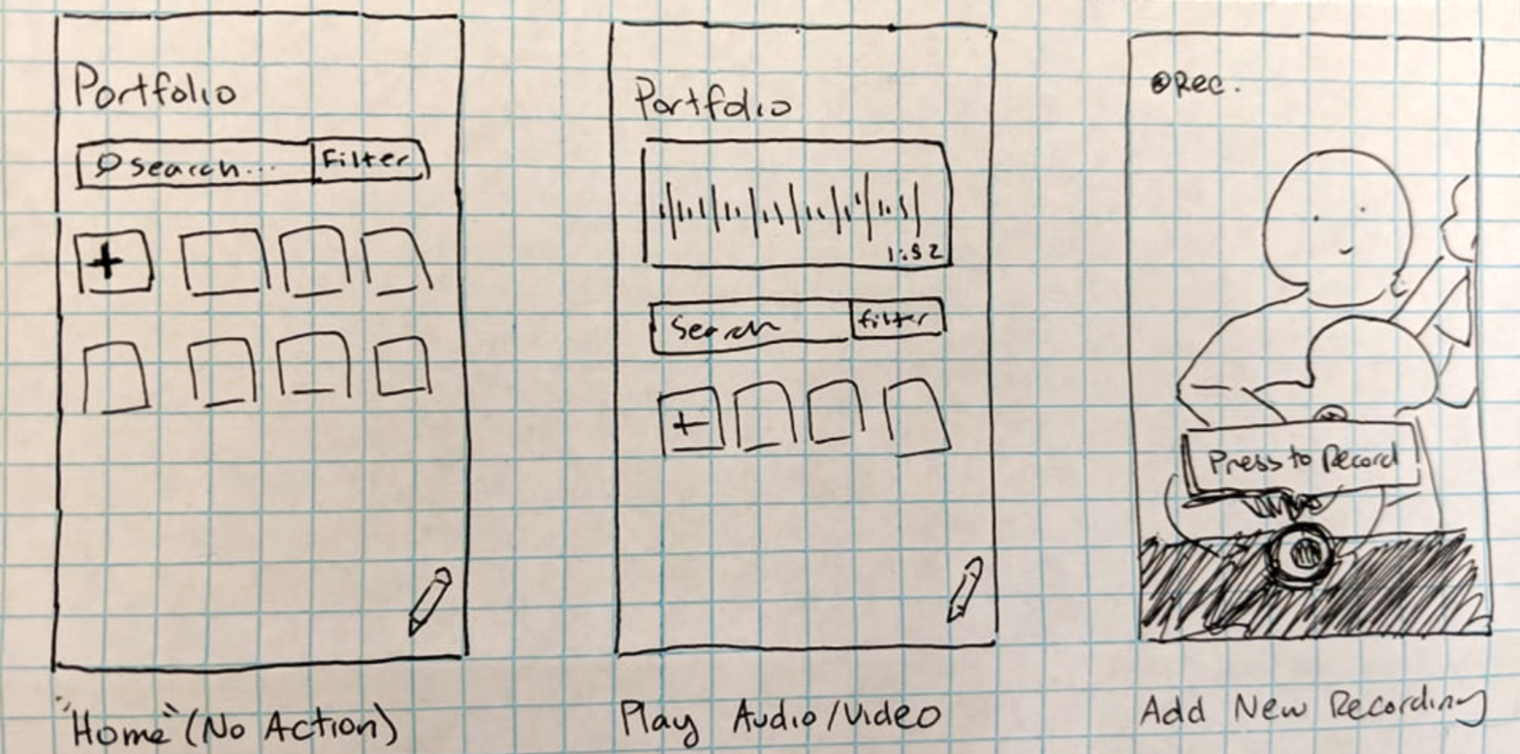 Portfolio
search...
Filter
+
"Home" (No Action)
Portfolio
1:52
Search
filter
+
Play Audio/Video
Rec.
Press to Record
Add New Recording